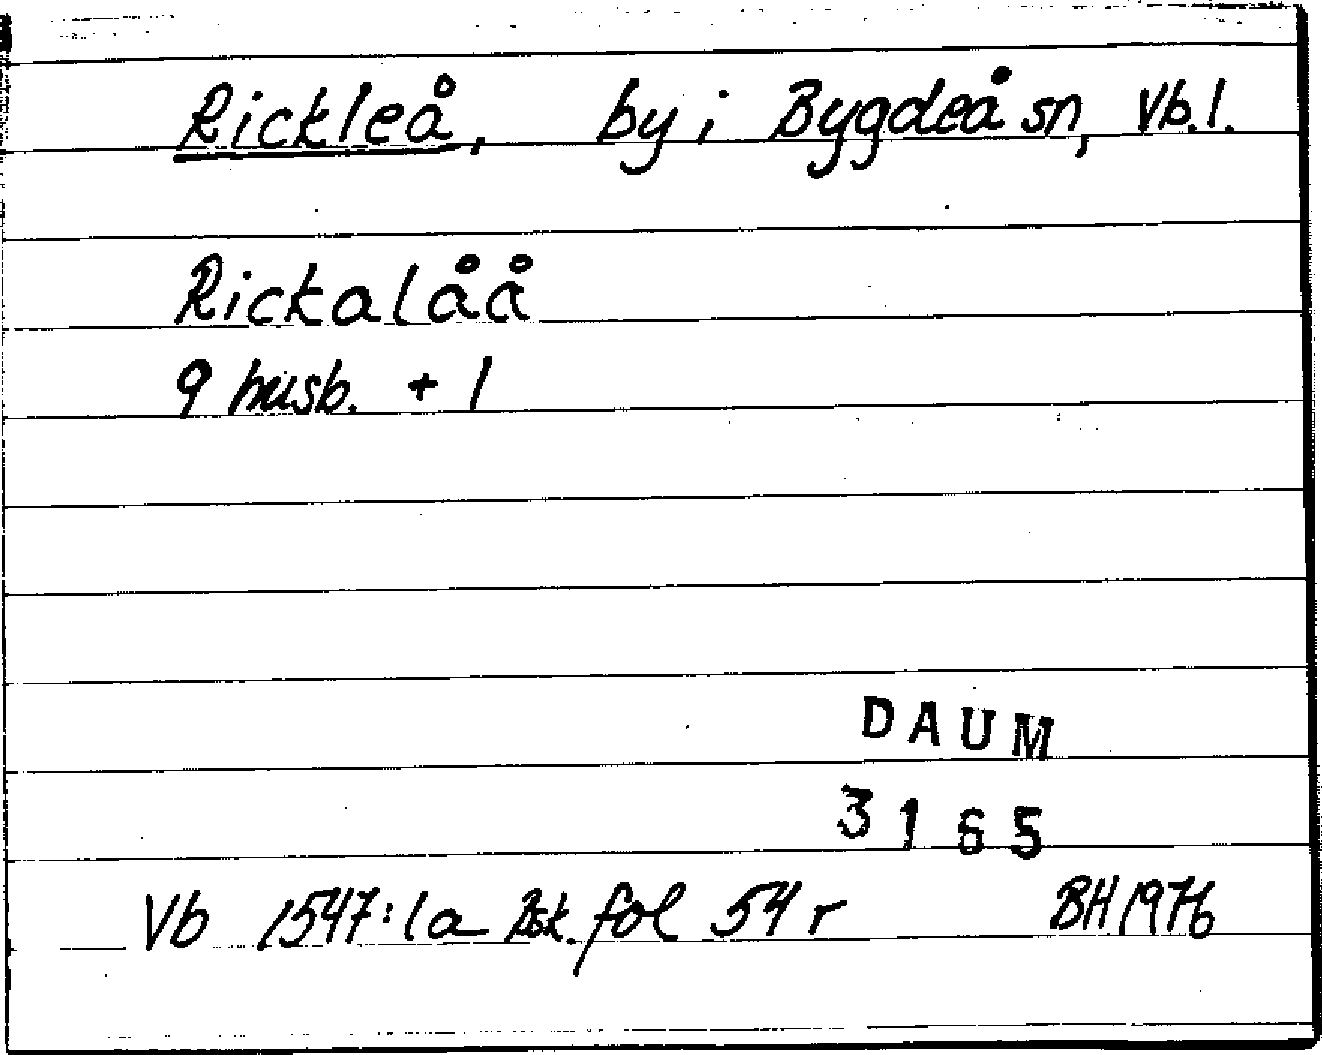 Rickleå, by i Bygdeå sn, Vb.l.
Rickalåå
9 husb. + 1
DAUM
3165
Vb 1547:1a Bsk. fol 54 r BH 1976